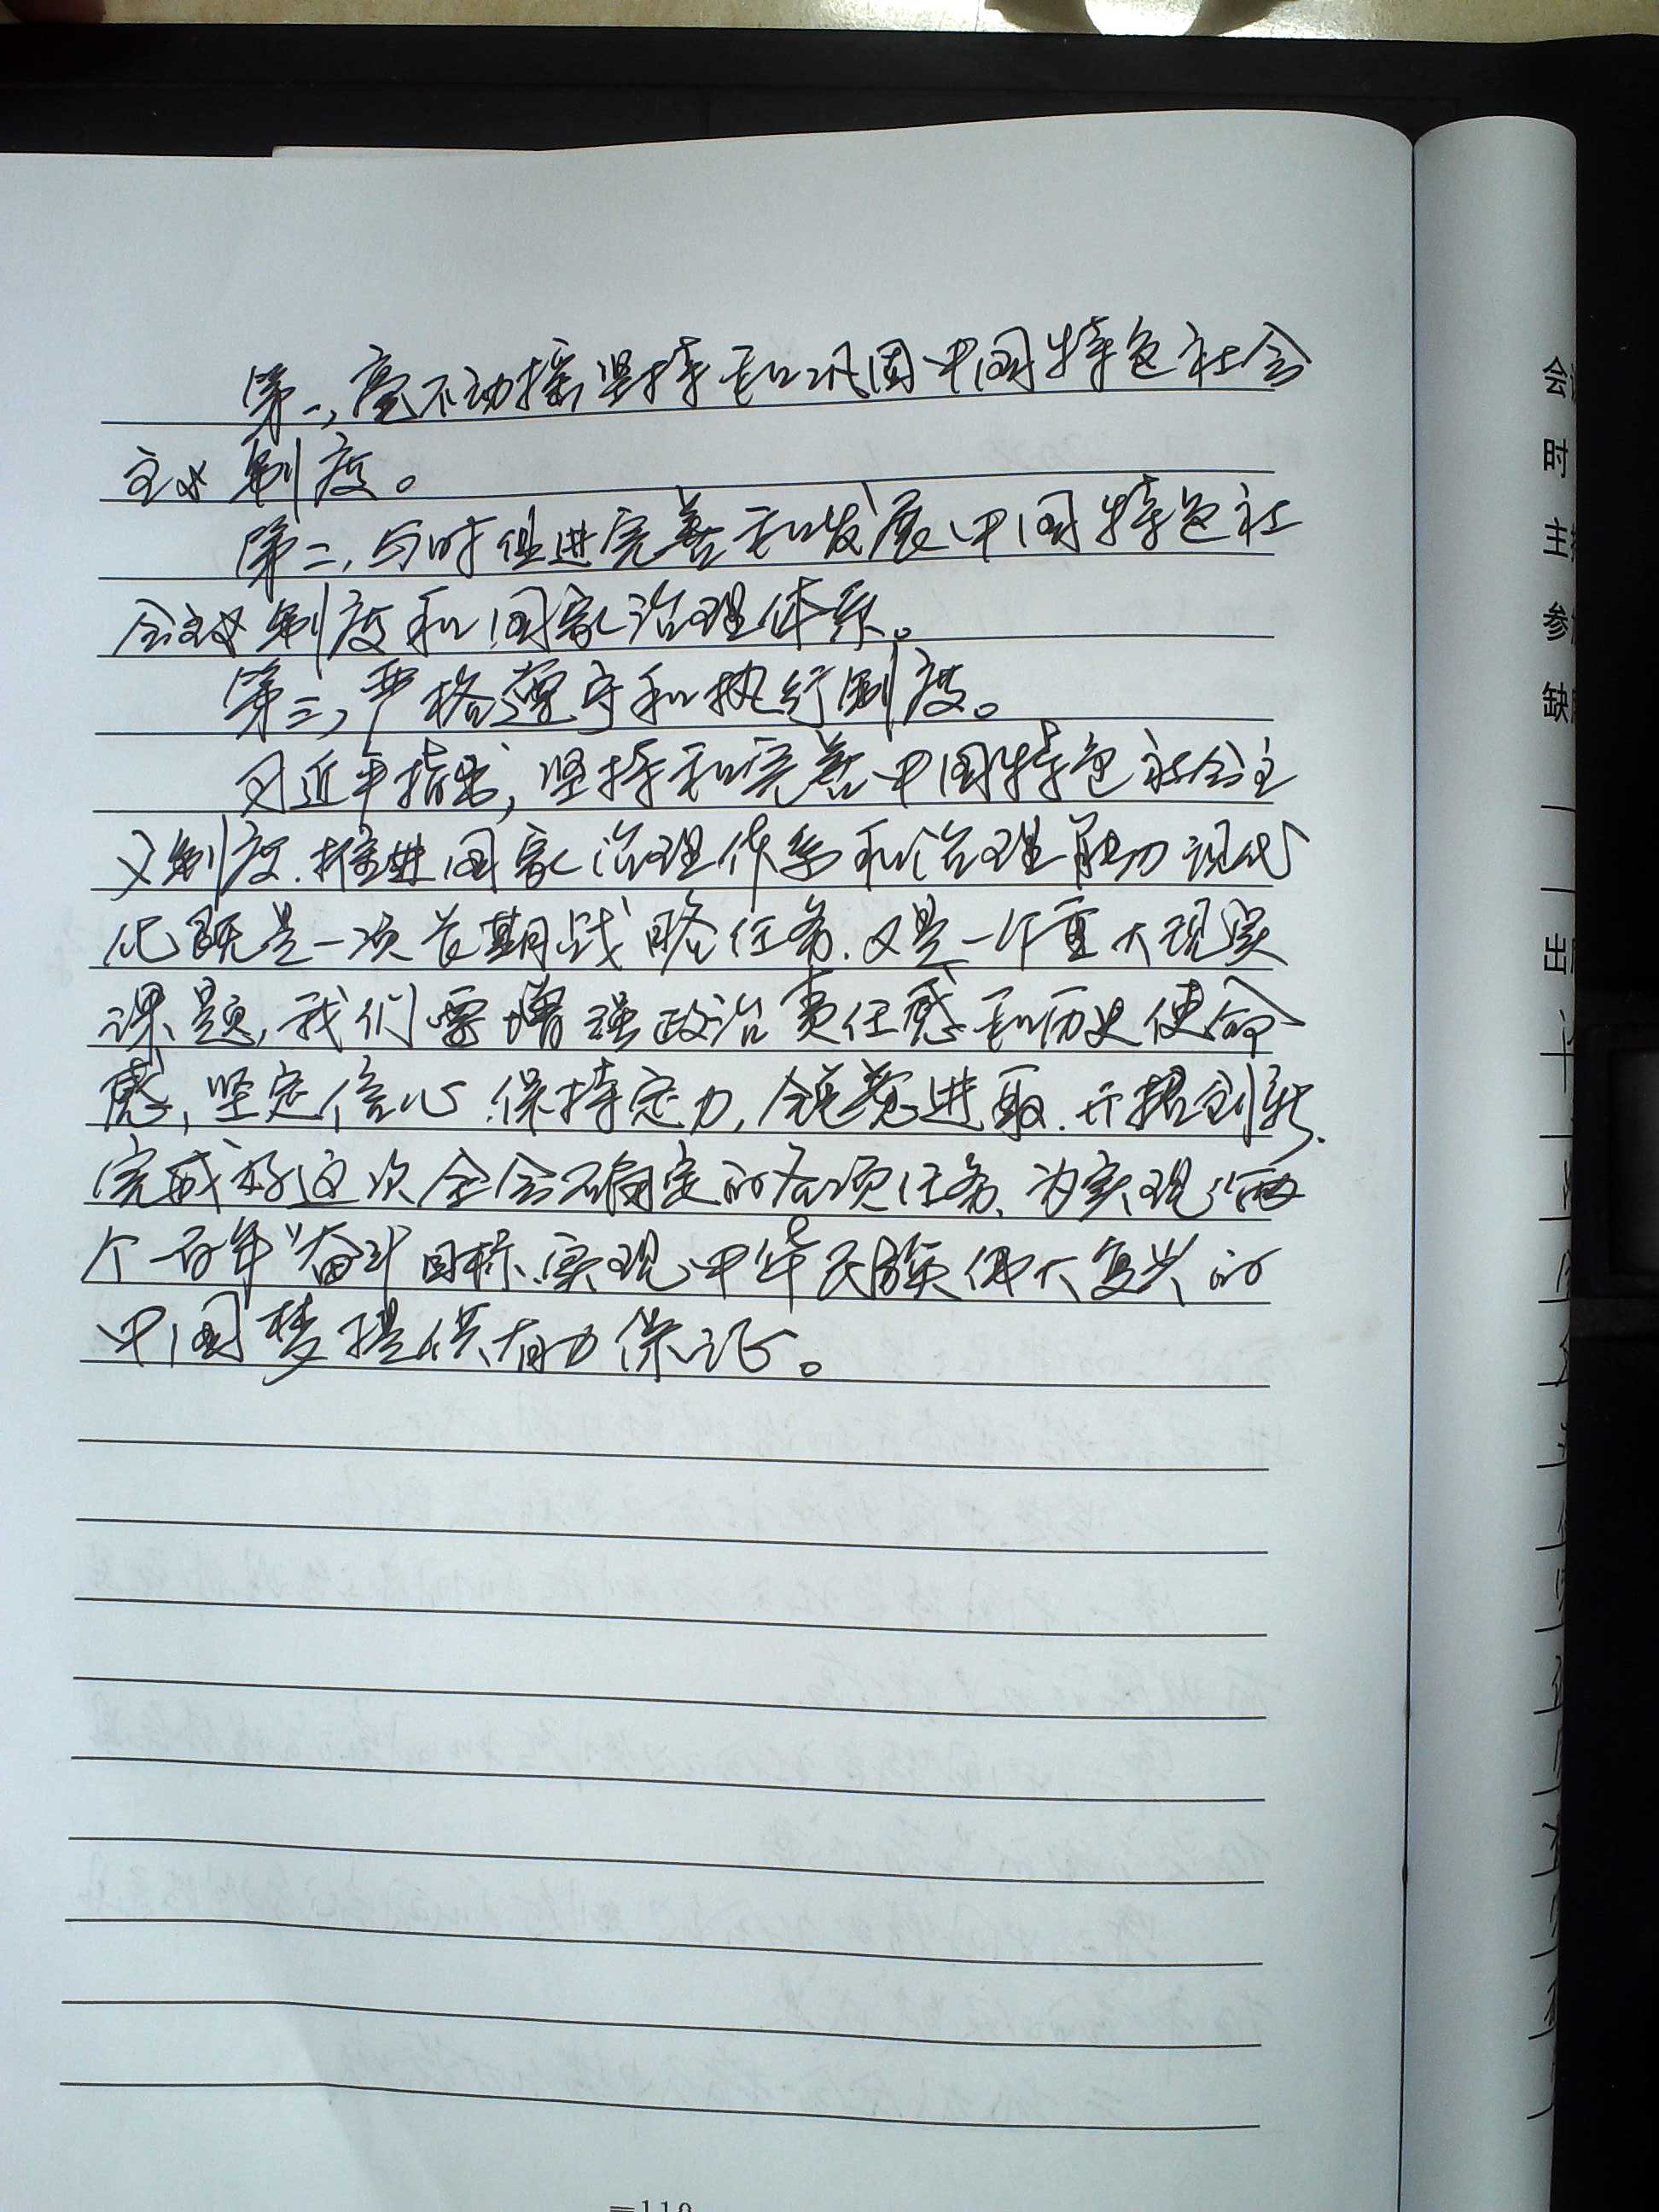 第一,毫不动摇坚持和巩固中国特色社会
主义制度。
第二,与时俱进完善和发展中国特色社
会主义制度和国家治理体系。
第三,严格遵守和执行制度。
习近平指出,坚持和完善中国特色社会主
义制度.推进国家治理体系和治理能力现代
化既是一项长期战略任务.又是一个重大现实
课题,我们要增强政治责任感和历史使命
感,坚定信心.保持定力,锐意进取.开拓创新.
完成好这次全会确定的各项任务、为实现“两
个一百年”奋斗目标、实现中华民族伟大复兴的
中国梦提供有力保证。
会
时
主
参
缺
出